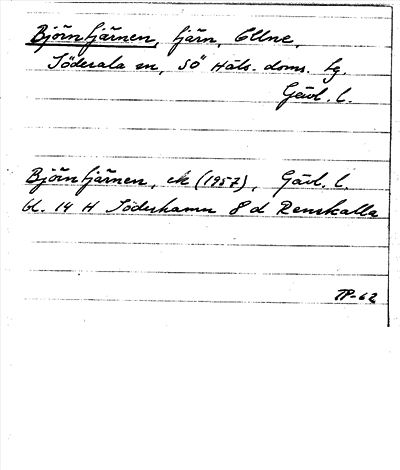 Björntjärnen, tjärn, Ellne,
Söderala sn, SÖ Häls. doms. tg
Gävl. l.
Björntjärnen, ek (1957), Gävl. l.
bl. 14 H Söderhamn 8 d Renskalla
TP-62